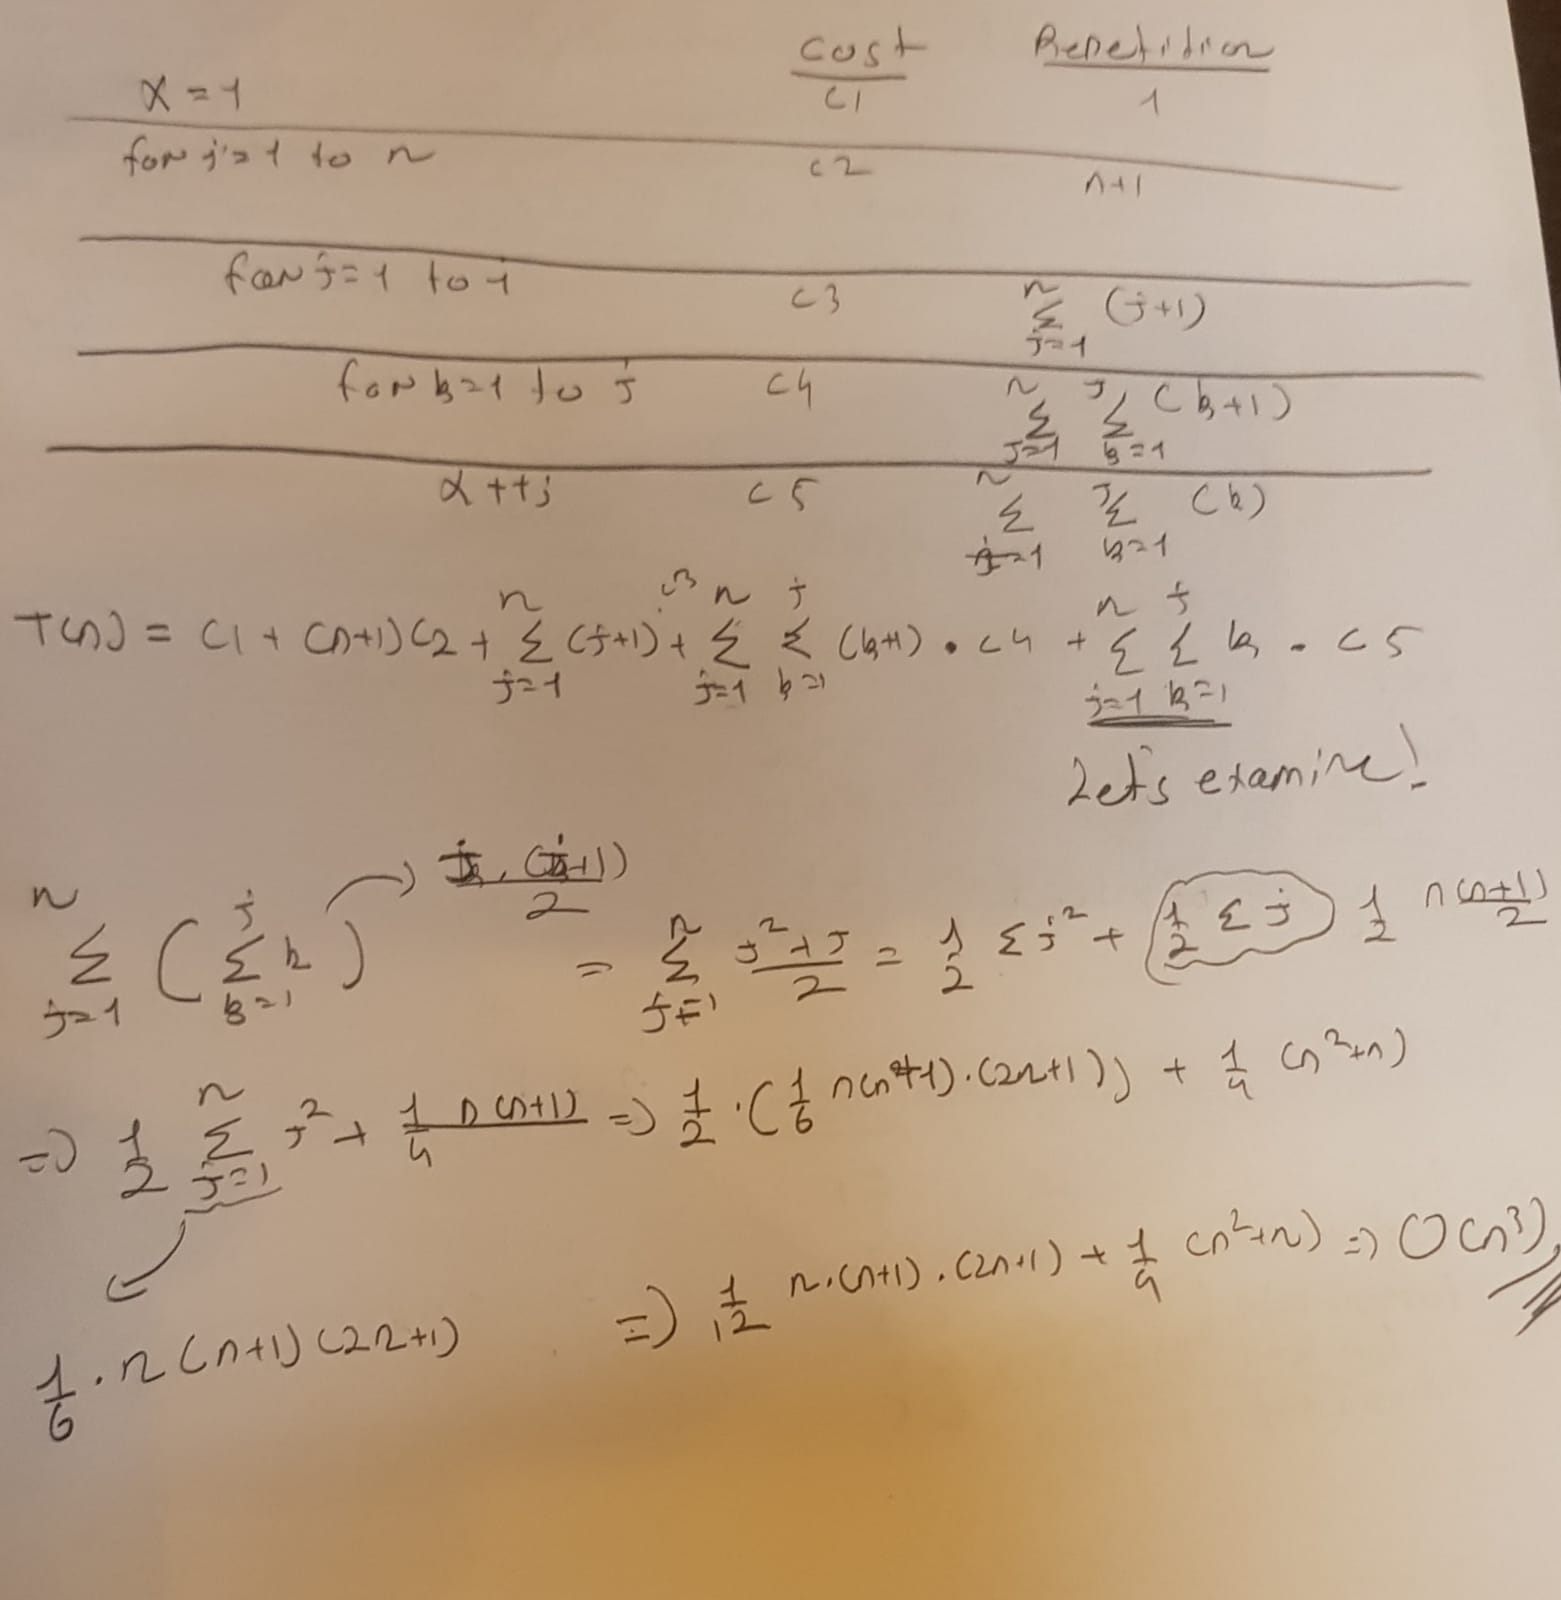 Cost Repetition
x = 1 c1 1
for i=1 to n c2 n+1
for j=1 to i c3 n Σ j=1 (j+1)
for k=1 to j c4 n Σ j=1 j Σ k=1 (k+1)
x++; c5 n Σ j=1 j Σ k=1 (k)
T(n) = c1 + (n+1)c2 + n Σ j=1 (j+1).c3 + n Σ j=1 j Σ k=1 (k+1) . c4 + n Σ j=1 j Σ k=1 k . c5
Let's examine!
n Σ j=1 ( j Σ k=1 k ) → j.(j+1)/2 = n Σ j=1 j²+j/2 = 1/2 Σ j² + 1/2 Σ j 1/2 n(n+1)/2
=> 1/2 n Σ j=1 j² + 1/4 n(n+1) => 1/2 .(1/6 n(n+1).(2n+1)) + 1/4 (n²+n)
1/6 . n(n+1)(2n+1) => 1/12 n.(n+1).(2n+1) + 1/4 (n²+n) => O(n³)